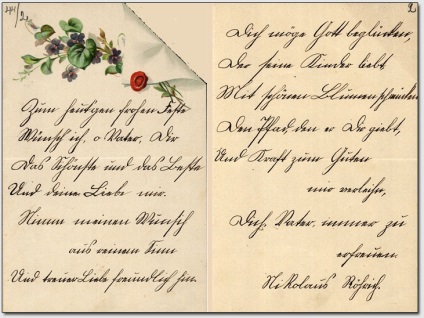 Zum heutgen frohen Feste
Wünsch ich, o Vater, Dir
Das Schönste und das Beste
Und deine Liebe mir.
Nimm meinen Wunsch
aus reinem Sinn
Und treuer Liebe freundlich hin.
2
Dich möge Gott beglücken,
Der seine Kinder liebt
Mit schönen Blumen schmücken
Den Pfad, den er Dir giebt,
Und Kraft zum Guten
mir verleihn,
Dich, Vater, immer zu
erfreuen.
Nikolaus Röhrich.